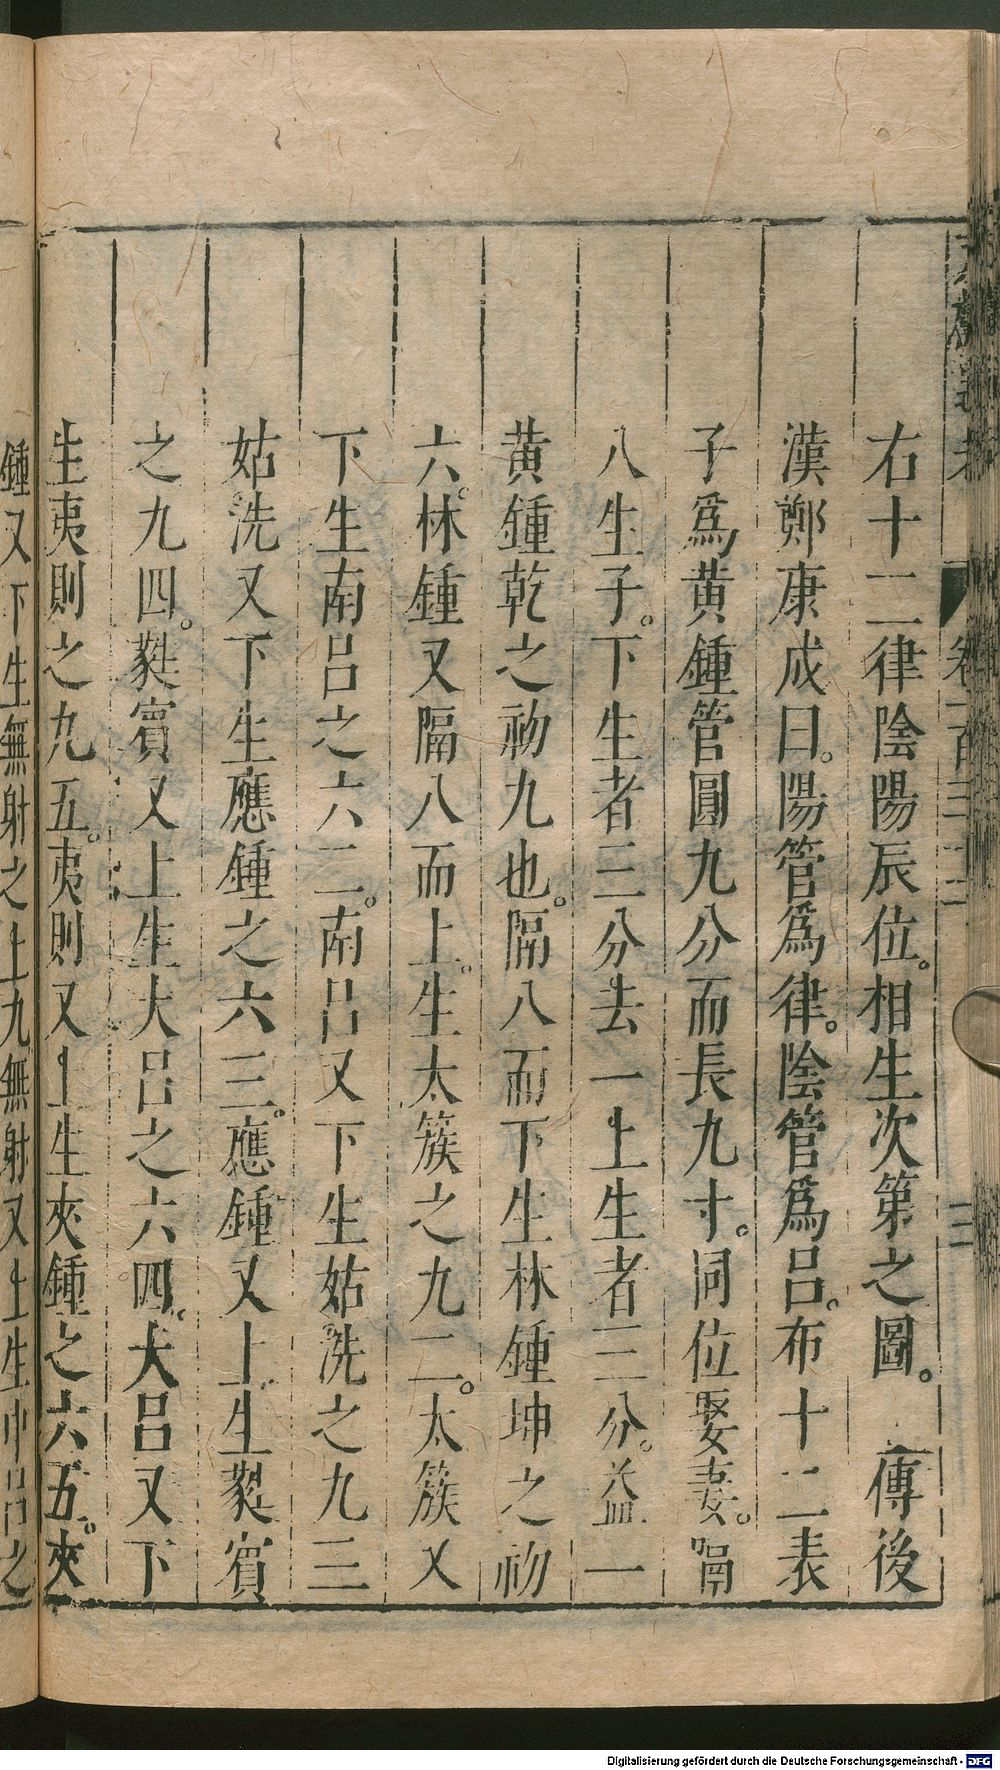 卷一百三十二
三
右十二律陰陽辰位。相生次第之圖。傳後
漢鄭康成曰。陽管爲律。陰管爲呂。布十二表
子爲黄鍾管圓九分而長九寸。同位娶妻。隔
八生子。下生者三分去一上生者三分。益一
黄鍾乾之初九也。隔八而下生林鍾坤之初
六。林鍾又隔八而上。生太簇之九二。太簇又
下生南呂之六二。南呂又下生姑洗之九三
姑洗又下生應鍾之六三。應鍾又上生蕤賓
之九四。蕤賓又上生大呂之六四。大呂又下
生夷則之九五。夷則又上生夾鍾之六五。夾
鍾又下生無射之上九無射又上生中呂之
Digitalisierung gefördert durch die Deutsche Forschungsgemeinschaft - DFG